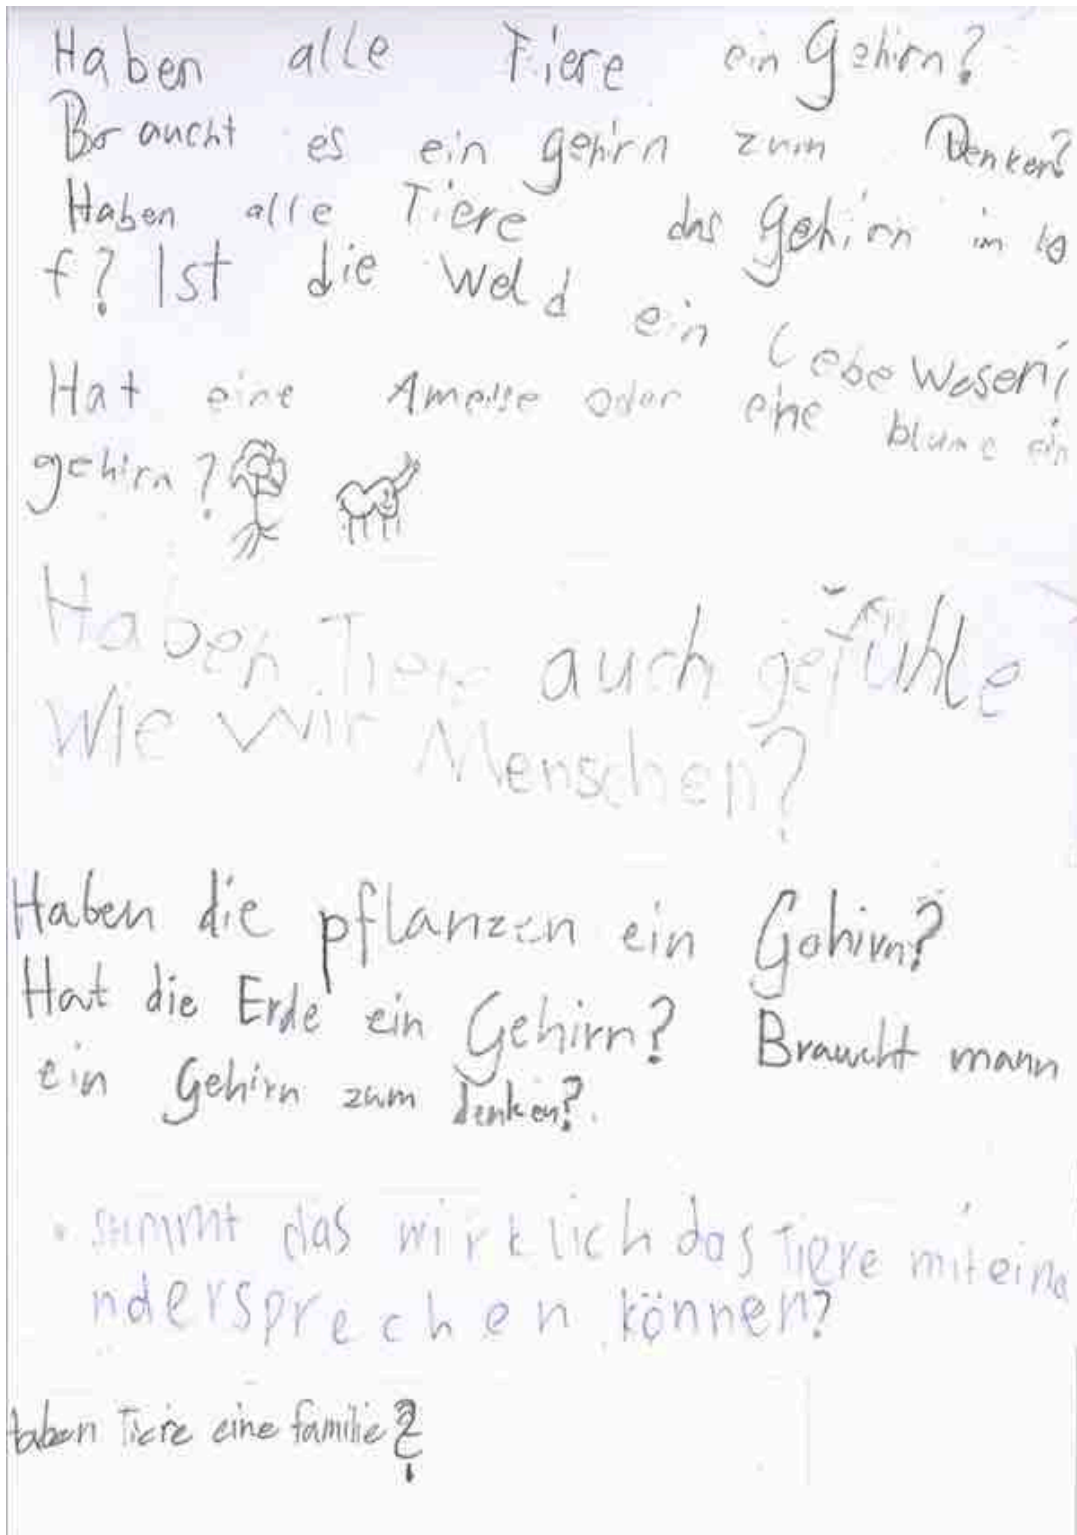 Haben alle Tiere ein Gehirn?
Braucht es ein gehirn zum Denken?
Haben alle Tiere das Gehirn im ko
f? Ist die Weld ein Lebewesen?
Hat eine Ameise oder eine blume ein
gehirn?
Haben Tiere auch gefühle
wie wir Menschen?
Haben die pflanzen ein Gehirn?
Hat die Erde ein Gehirn? Braucht mann
ein Gehirn zum denken?.
stimmt das wirklich das Tiere miteina
ndersprechen können?
Haben Tiere eine familie?